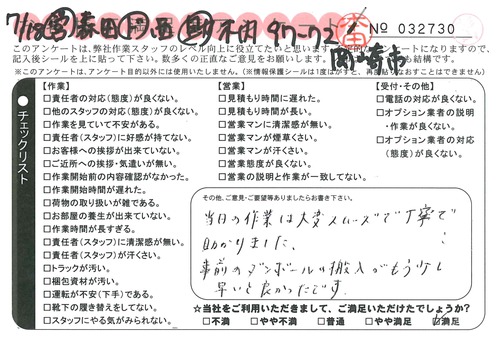 7/18
森田
不用
No 032730
岡崎市
このアンケートは、弊社作業スタッフのレベル向上に役立てたいと思います。
記入後シールを上に貼って下さい。数多くの正直なご意見をお願いします。
※このアンケートは、アンケート目的以外には使用いたしません。(※情報保護シールは1度はがすと、再度貼りなおすことはできません)
チェックリスト
【作業】
□責任者の対応(態度)が良くない。
□他のスタッフの対応(態度)が良くない。
□作業を見ていて不安がある。
□責任者(スタッフ)に好感が持てない。
□お客様への挨拶が出来ていない。
□ご近所への挨拶・気遣いが無い。
□作業開始前の内容確認がなかった。
□作業開始時間が遅れた。
□荷物の取り扱いが雑である。
□お部屋の養生が出来ていない。
□作業時間が長すぎる。
□責任者(スタッフ)に清潔感が無い。
□責任者(スタッフ)が汗くさい。
□トラックが汚い。
□梱包資材が汚い。
□運転が不安(下手)である。
□靴下の履き替えをしてない。
□スタッフにやる気がみられない。
【営業】
□見積もり時間に遅れた。
□見積もり時間が長い。
□営業マンに清潔感が無い。
□営業マンが煙草くさい。
□営業マンが汗くさい。
□営業態度が良くない。
□営業の説明と作業が一致してない。
【受付・その他】
□電話の対応が良くない。
□オプション業者の説明
・作業が良くない。
□オプション業者の対応
(態度)が良くない。
その他、ご意見・ご要望等ありましたらお書き下さい。
当日の作業は大変スムーズで丁寧で
助かりました、
事前のダンボールの搬入がもう少し
早いと良かったです。
☆当社をご利用いただきまして、ご満足いただけたでしょうか?
□不満 □やや不満 □普通 □やや満足 ☑満足